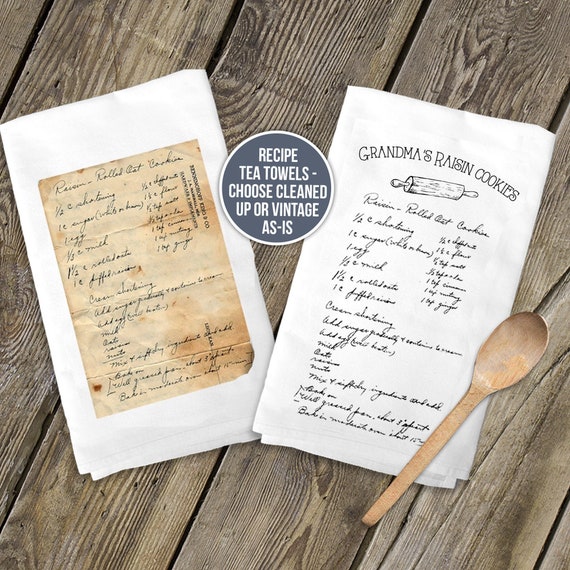 Raisin - Rolled Oat Cookies
½ c shortening
1 c sugar (white or brown)
1 egg
½ c milk
1½ c rolled oats
1 c puffed raisins
½ c
1¾ c flour
½ tsp salt
½ tsp soda
1 tsp cinnamon
1 tsp nutmeg
1 tsp ginger
Cream shortening
Add sugar gradually & continue to cream
Add egg (well beaten)
milk
Oats
raisins
nuts
Mix & sift dry ingredients and add
Bake on
Well greased pan, about 3" apart
Bake in moderate oven about 15 min
RECIPE
TEA TOWELS -
CHOOSE CLEANED
UP OR VINTAGE
AS-IS
GRANDMA'S RAISIN COOKIES
Raisin - Rolled Oat Cookies
½ c shortening
1 c sugar (white or brown)
1 egg
½ c milk
1½ c rolled oats
1 c puffed raisins
½ c
1¾ c flour
½ tsp salt
½ tsp soda
1 tsp cinnamon
1 tsp nutmeg
1 tsp ginger
Cream shortening
Add sugar gradually & continue to cream
Add egg (well beaten)
milk
Oats
raisins
nuts
Mix & sift dry ingredients and add
Bake on
Well greased pan, about 3" apart
Bake in moderate oven about 15 min